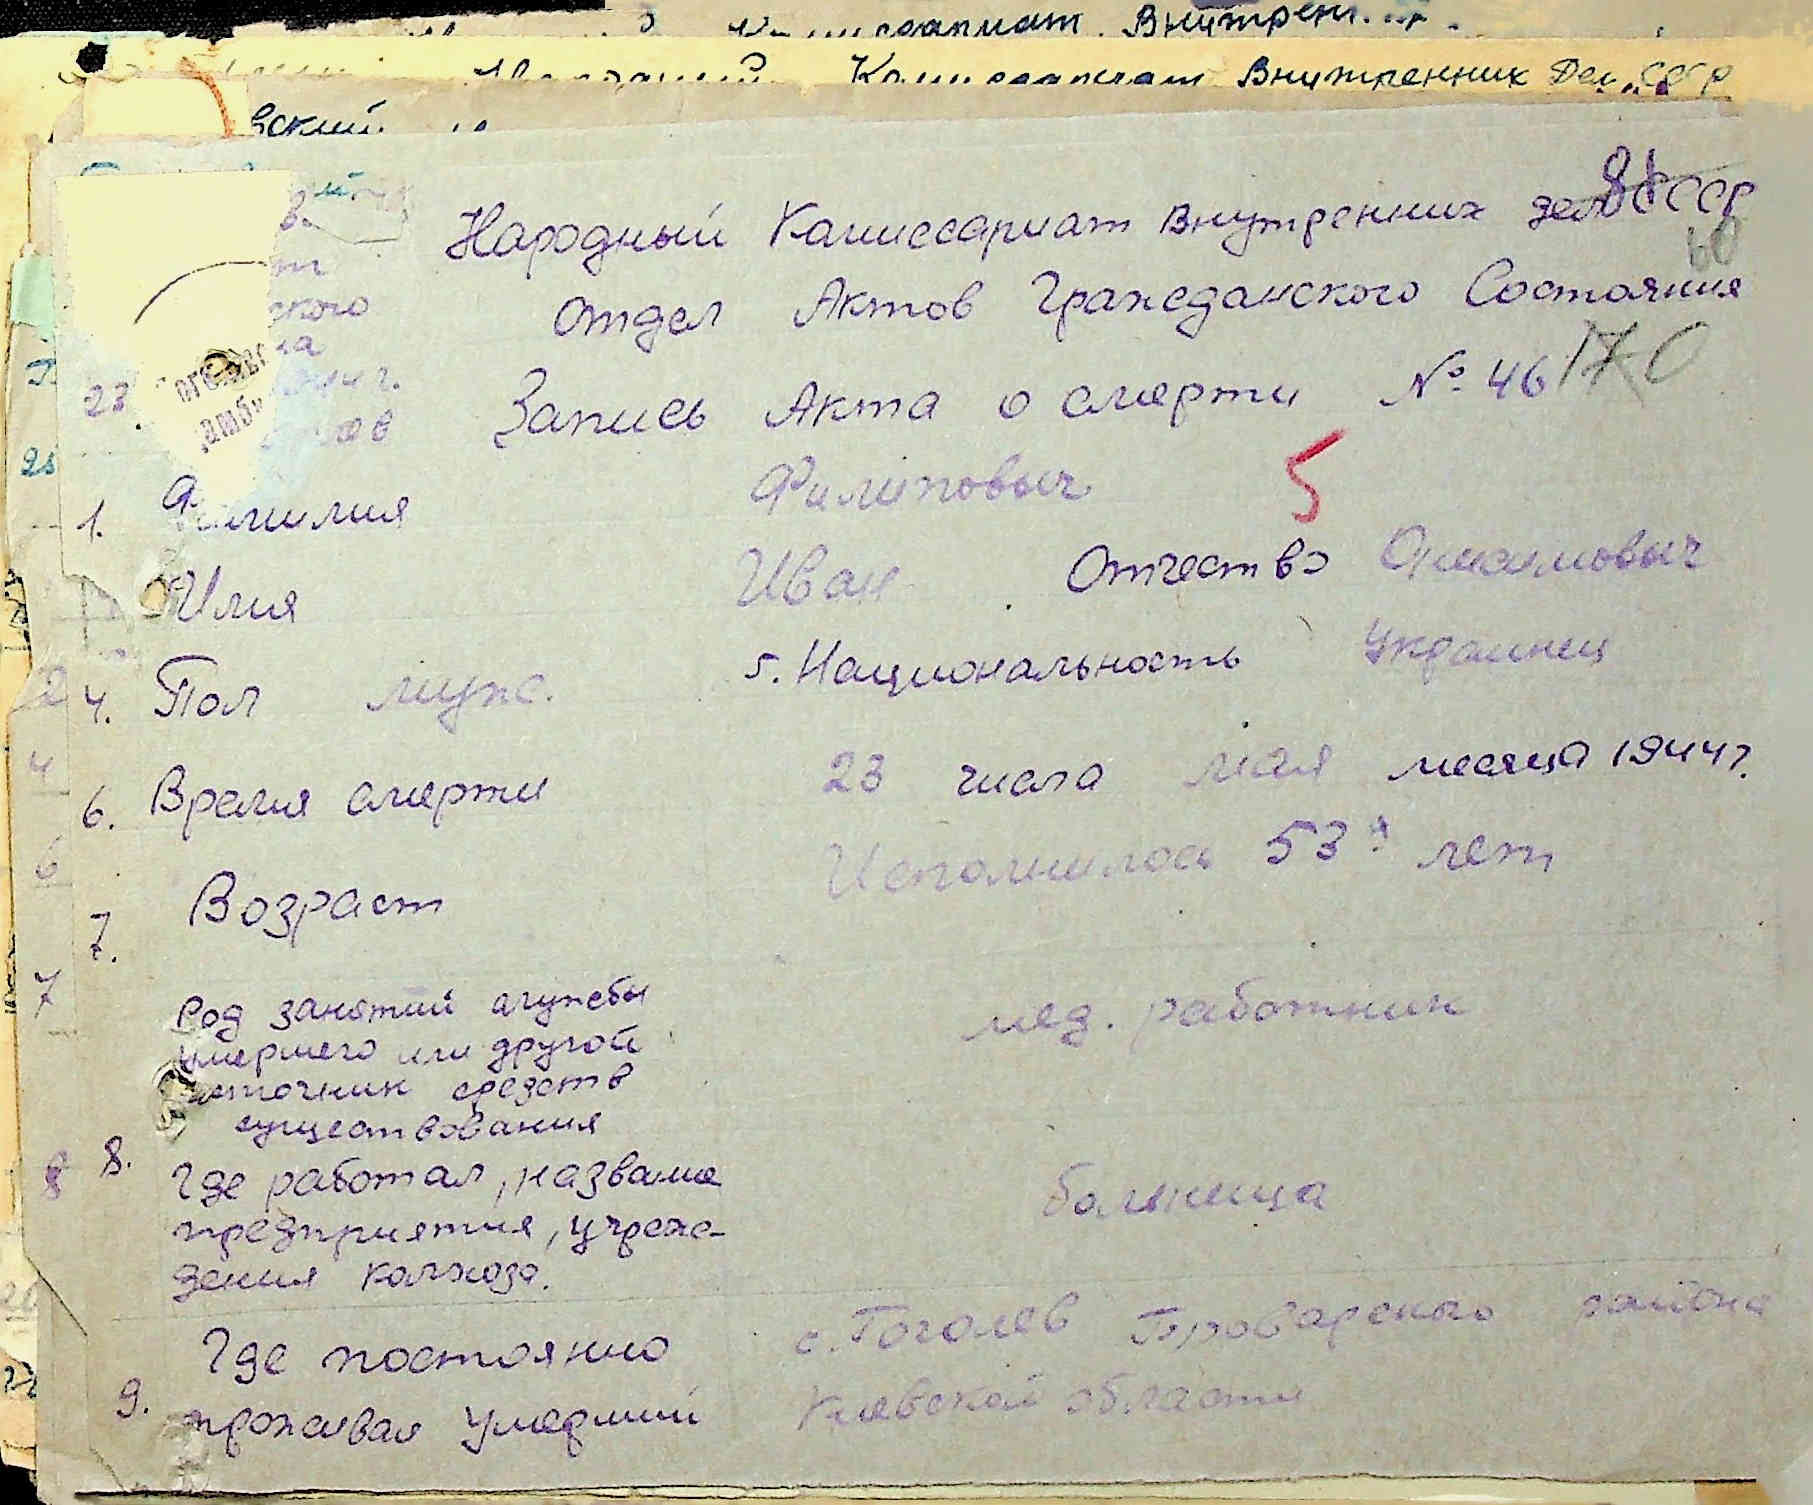 Комиссариат Внутрен
Комиссариат Внутренних Дел СССР
вский
81
Народный Комиссариат Внутренних дел СССР
60
ского
отдел Актов Гражданского Состояния
на
170
23
Запись Акта о смерти № 46
5
1. Фамилия Филиповыч
Имя Иван Отчество
4. Пол муж. 5. Национальность Украинец
6. Время смерти 23 числа мая месяца 1944 г.
7. Возраст Исполнилось 53 лет
Род занятий службы
умершего или другой
источник средств
существования мед. работник
8. Где работал, название
предприятия, учреж-
дения колхоза. больница
Где постоянно с. Гоголев Броварского района
9. проживал умерший Киевской области